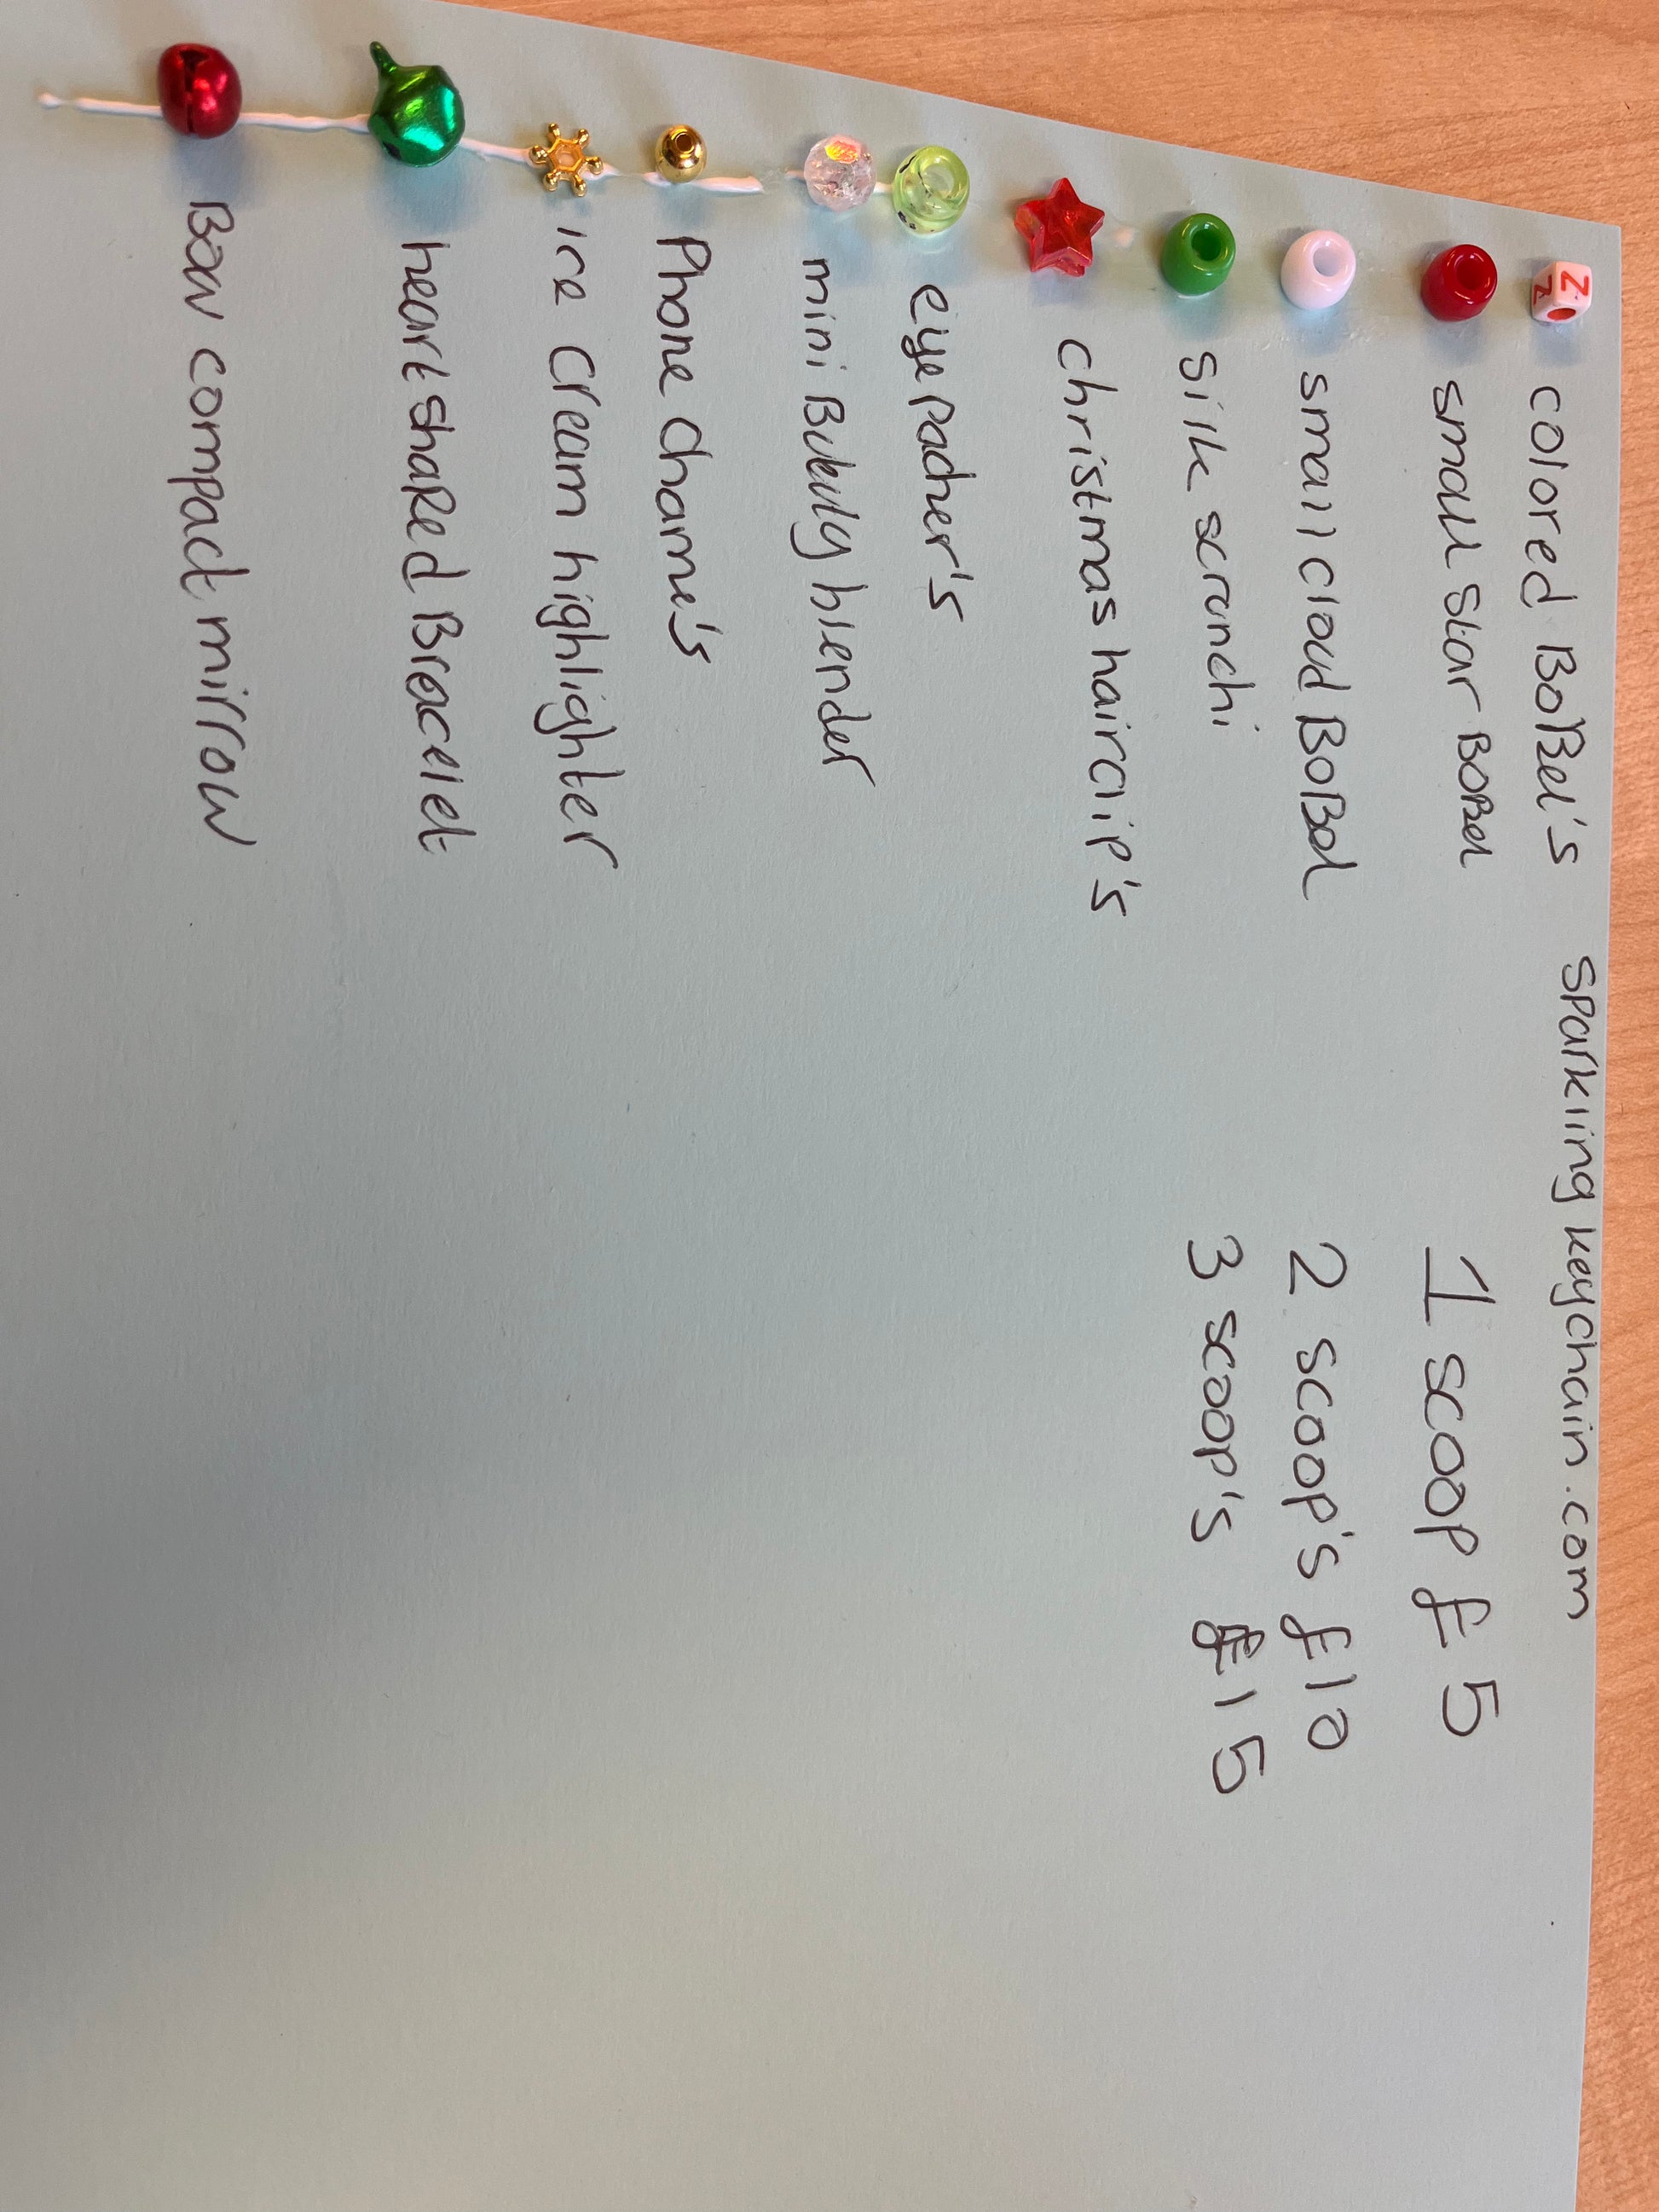 colored BoBBel's
sparkling keychain.com
small star BoBBel
small cloud BoBBel
silk scrunchi
christmas hairclip's
eye pacher's
mini Bubuly blender
Phone Charme's
ice cream highlighter
heart shaped Bracelet
Bow compact mirrow
1 scoop £5
2 scoop's £10
3 scoop's £15
Z
Z